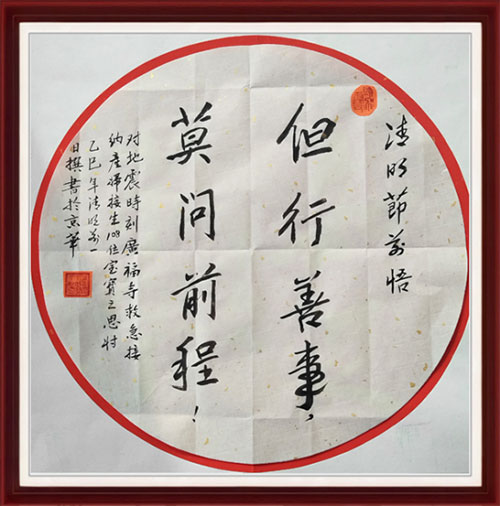 清明节前悟
但行善事，
莫问前程！
对地震時刻廣福寺救急接
纳産婦接生108位宝寶之思忖
乙巳年清明前一
日撰書於京華